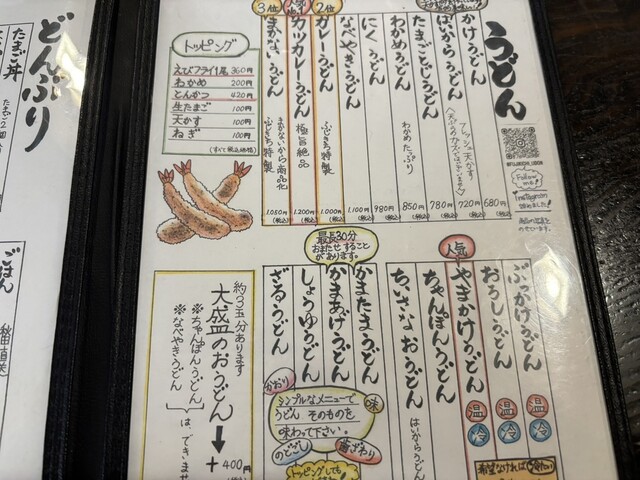 うどん
かけうどん
680円
(税込)
はいからうどん
フレッシュ天かす
720円
(税込)
たまごとじうどん
780円
(税込)
わかめうどん
わかめたっぷり
850円
(税込)
にくうどん
980円
(税込)
なべやきうどん
1,100円
(税込)
2位
カレーうどん
ふじきち特製
1,000円
(税込)
カツカレーうどん
極旨絶品
1,200円
(税込)
3位
まかないうどん
まかないから商品化
ふじきち特製
1,050円
(税込)
Follow me!
Instagram
トッピング
えびフライ1尾 360円
わかめ 200円
とんかつ 420円
生たまご 100円
天かす 100円
ねぎ 100円
(すべて税込価格)
ぶっかけうどん
温
冷
おろしうどん
温
冷
人気
やまかけうどん
温
冷
ちゃんぽんうどん
ちいさなおうどん
はいからうどん
希望なければ冷たい
最長30分
おまたせすることが
あります。
かまたまうどん
かまあげうどん
しょうゆうどん
ざるうどん
かおり
味
シンプルなメニューで
うどんそのものを
味わって下さい。
のどごし
歯ざわり
トッピングしても
約3玉分あります
大盛のおうどん
+400円
※ちゃんぽんうどん
※なべやきうどん
は、できません
どんぶり
たまご丼
たまご2個
ごはん